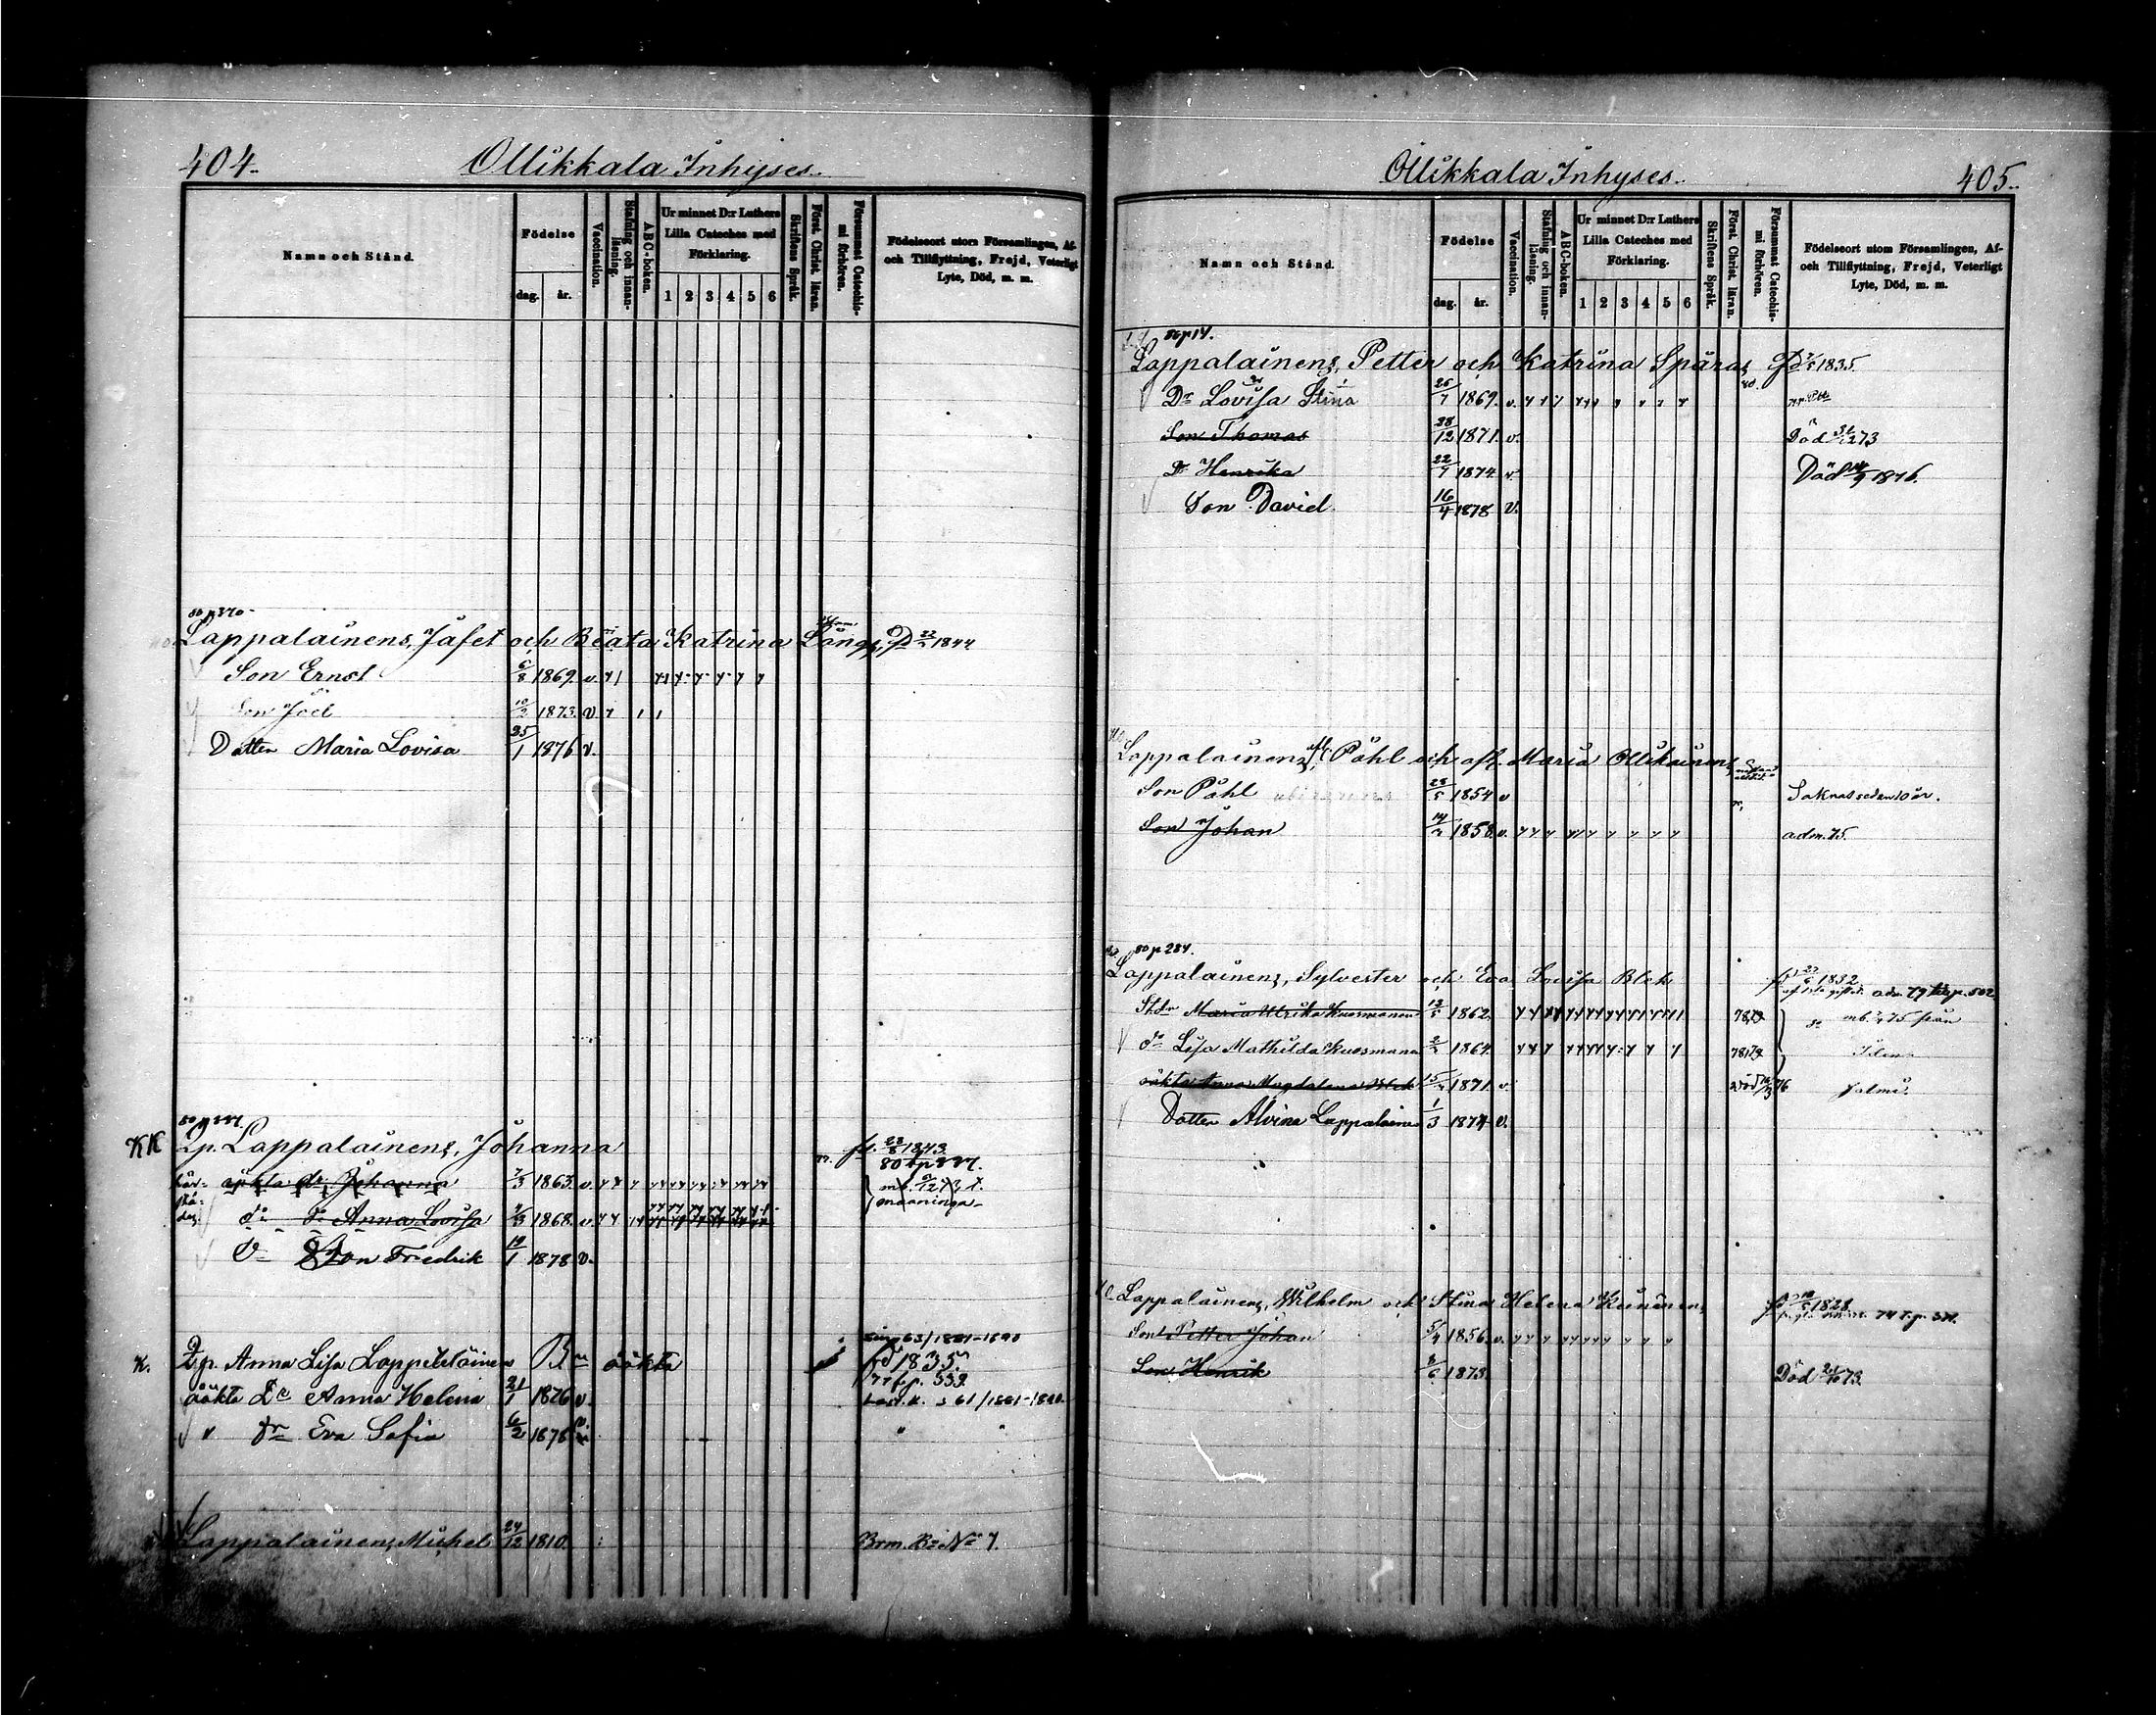 404.
Ollikkala Inhyses.
Namn och Stånd.
Födelse
dag. år.
Vaccination.
Stafning och innanläsning.
ABC-boken.
Ur minnet D:r Luthers Lilla Cateches med Förklaring.
1 2 3 4 5 6
Skriftens Språk.
Först. Christ. läran.
Försummat Catechismi förhören.
Födelseort utom Församlingen, Af- och Tillflyttning, Frejd, Veterligt Lyte, Död, m. m.
80 p 370.
Lappalainens, Jafet och Beata Katrina Långs, fd 22/2 1844
Son Ernst 6/8 1869. v.
Son Joel 10/2 1873. v.
Dotter Maria Lovisa 25/1 1876 v.
KK Lappalainens, Johanna fd. 23/8 1843
80 p 337.
oäkta dr Johanna 7/3 1863. v. mb.
maaninga
do dr Anna Lovisa 1868. v.
Son Fredrik 19/1 1878 v.
63/1881-1890
K. Anna Lisa Lappalainen oäkta fd 1835.
77 f.p. 559.
oäkta Dr Anna Helena 21/1 1876 v. 61/1881-1890.
" dr Eva Sofia 6/2 1878 "
Lappalainens, Michel 24/12 1810. Brm. Bn No 7.
405.
Ollikkala Inhyses.
Namn och Stånd.
Födelse
dag. år.
Vaccination.
Stafning och innanläsning.
ABC-boken.
Ur minnet D:r Luthers Lilla Cateches med Förklaring.
1 2 3 4 5 6
Skriftens Språk.
Först. Christ. läran.
Försummat Catechismi förhören.
Födelseort utom Församlingen, Af- och Tillflyttning, Frejd, Veterligt Lyte, Död, m. m.
80 p 14.
Lappalainens, Petter och Katrina Späras fd 1835.
Dr Lovisa Stina 26/7 1869. v.
Son Thomas 28/12 1871. v. Död 31/12 73
Dr Henrika 22/7 1874 v. Död 14/9 1876.
Son David 16/4 1878 v.
Lappalainens, Påhl och afl. Maria Ollikainens
Son Påhl 23/5 1854 v Saknas sedan 10 år.
Son Johan 1858. v. adm. 75.
80 p 284.
Lappalainens, Sylvester och Eva Lovisa Blek fd 1832
adm. 79
Maria Ulrika Kuosmanen 12/5 1862. 78,79 mb. 75 från
dr Lisa Mathilda Kuosmanen 1864. 78,79
oäkta Anna Magdalena Blek 1871. v. Död 76
Dotter Alvina Lappalainen 1/3 1874 v.
Lappalainens, Wilhelm och Stina Helena Keinänen fd 1828
Son Petter Johan 5/4 1856. v.
Son Henrik 2/6 1873. Död 73.